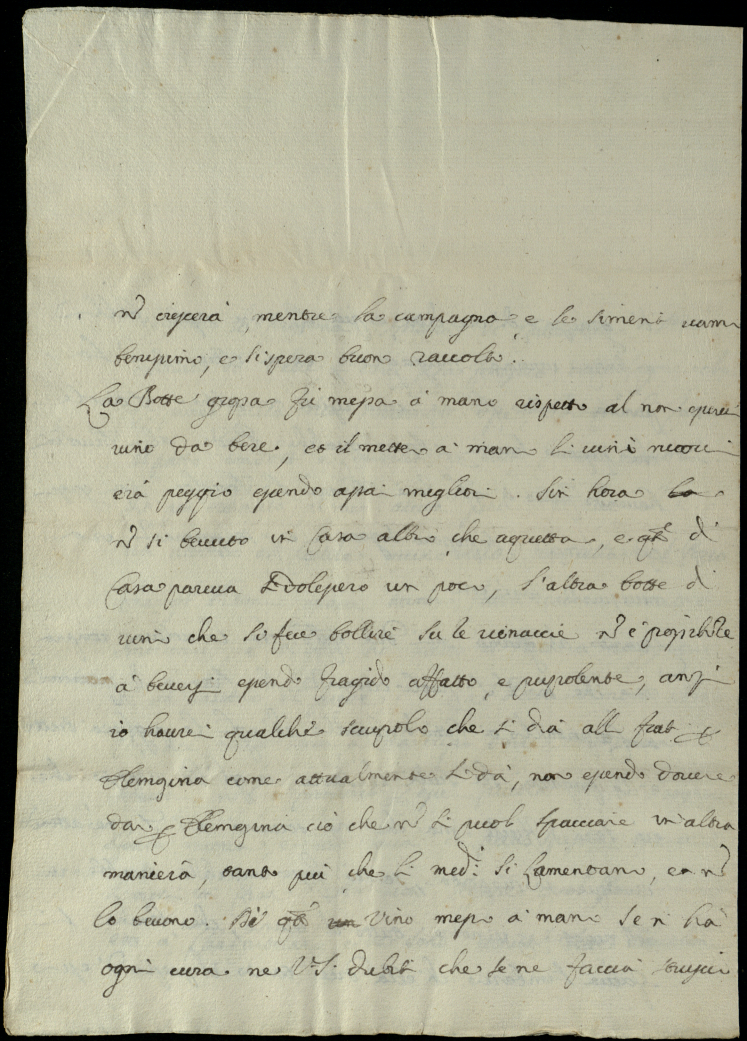 nō crescerà, mentre la campagna, e le simenti vanno
benissimo, e si spera buon raccolto.
La Botte grossa fù messa à mano rispetto al non esserci
vino da bere, et il metter à mano li vini nuovi
erà peggio essendo assai migliori. Sin hora
nō si bevuto in Casa altro che aquetta, e qsto di
Casa pareva si dolessero un poco, l'altra botte di
vino che si fece bollire su le vinaccie nō è possibile
à beversi essendo fragido affatto, e puzzolente, anzi
io haverei qualche scrupolo che si dia all
Elemosina come attualmente si dà, non essendo dovere
dar Elemosina ciò che nō si puol spacciare in altra
maniera, tanto più che li med.i si lamentano, e nō
lo bevono. Di qsto Vino messo à mano se n'hà
ogni cura ne V.S. dubiti che se ne faccia